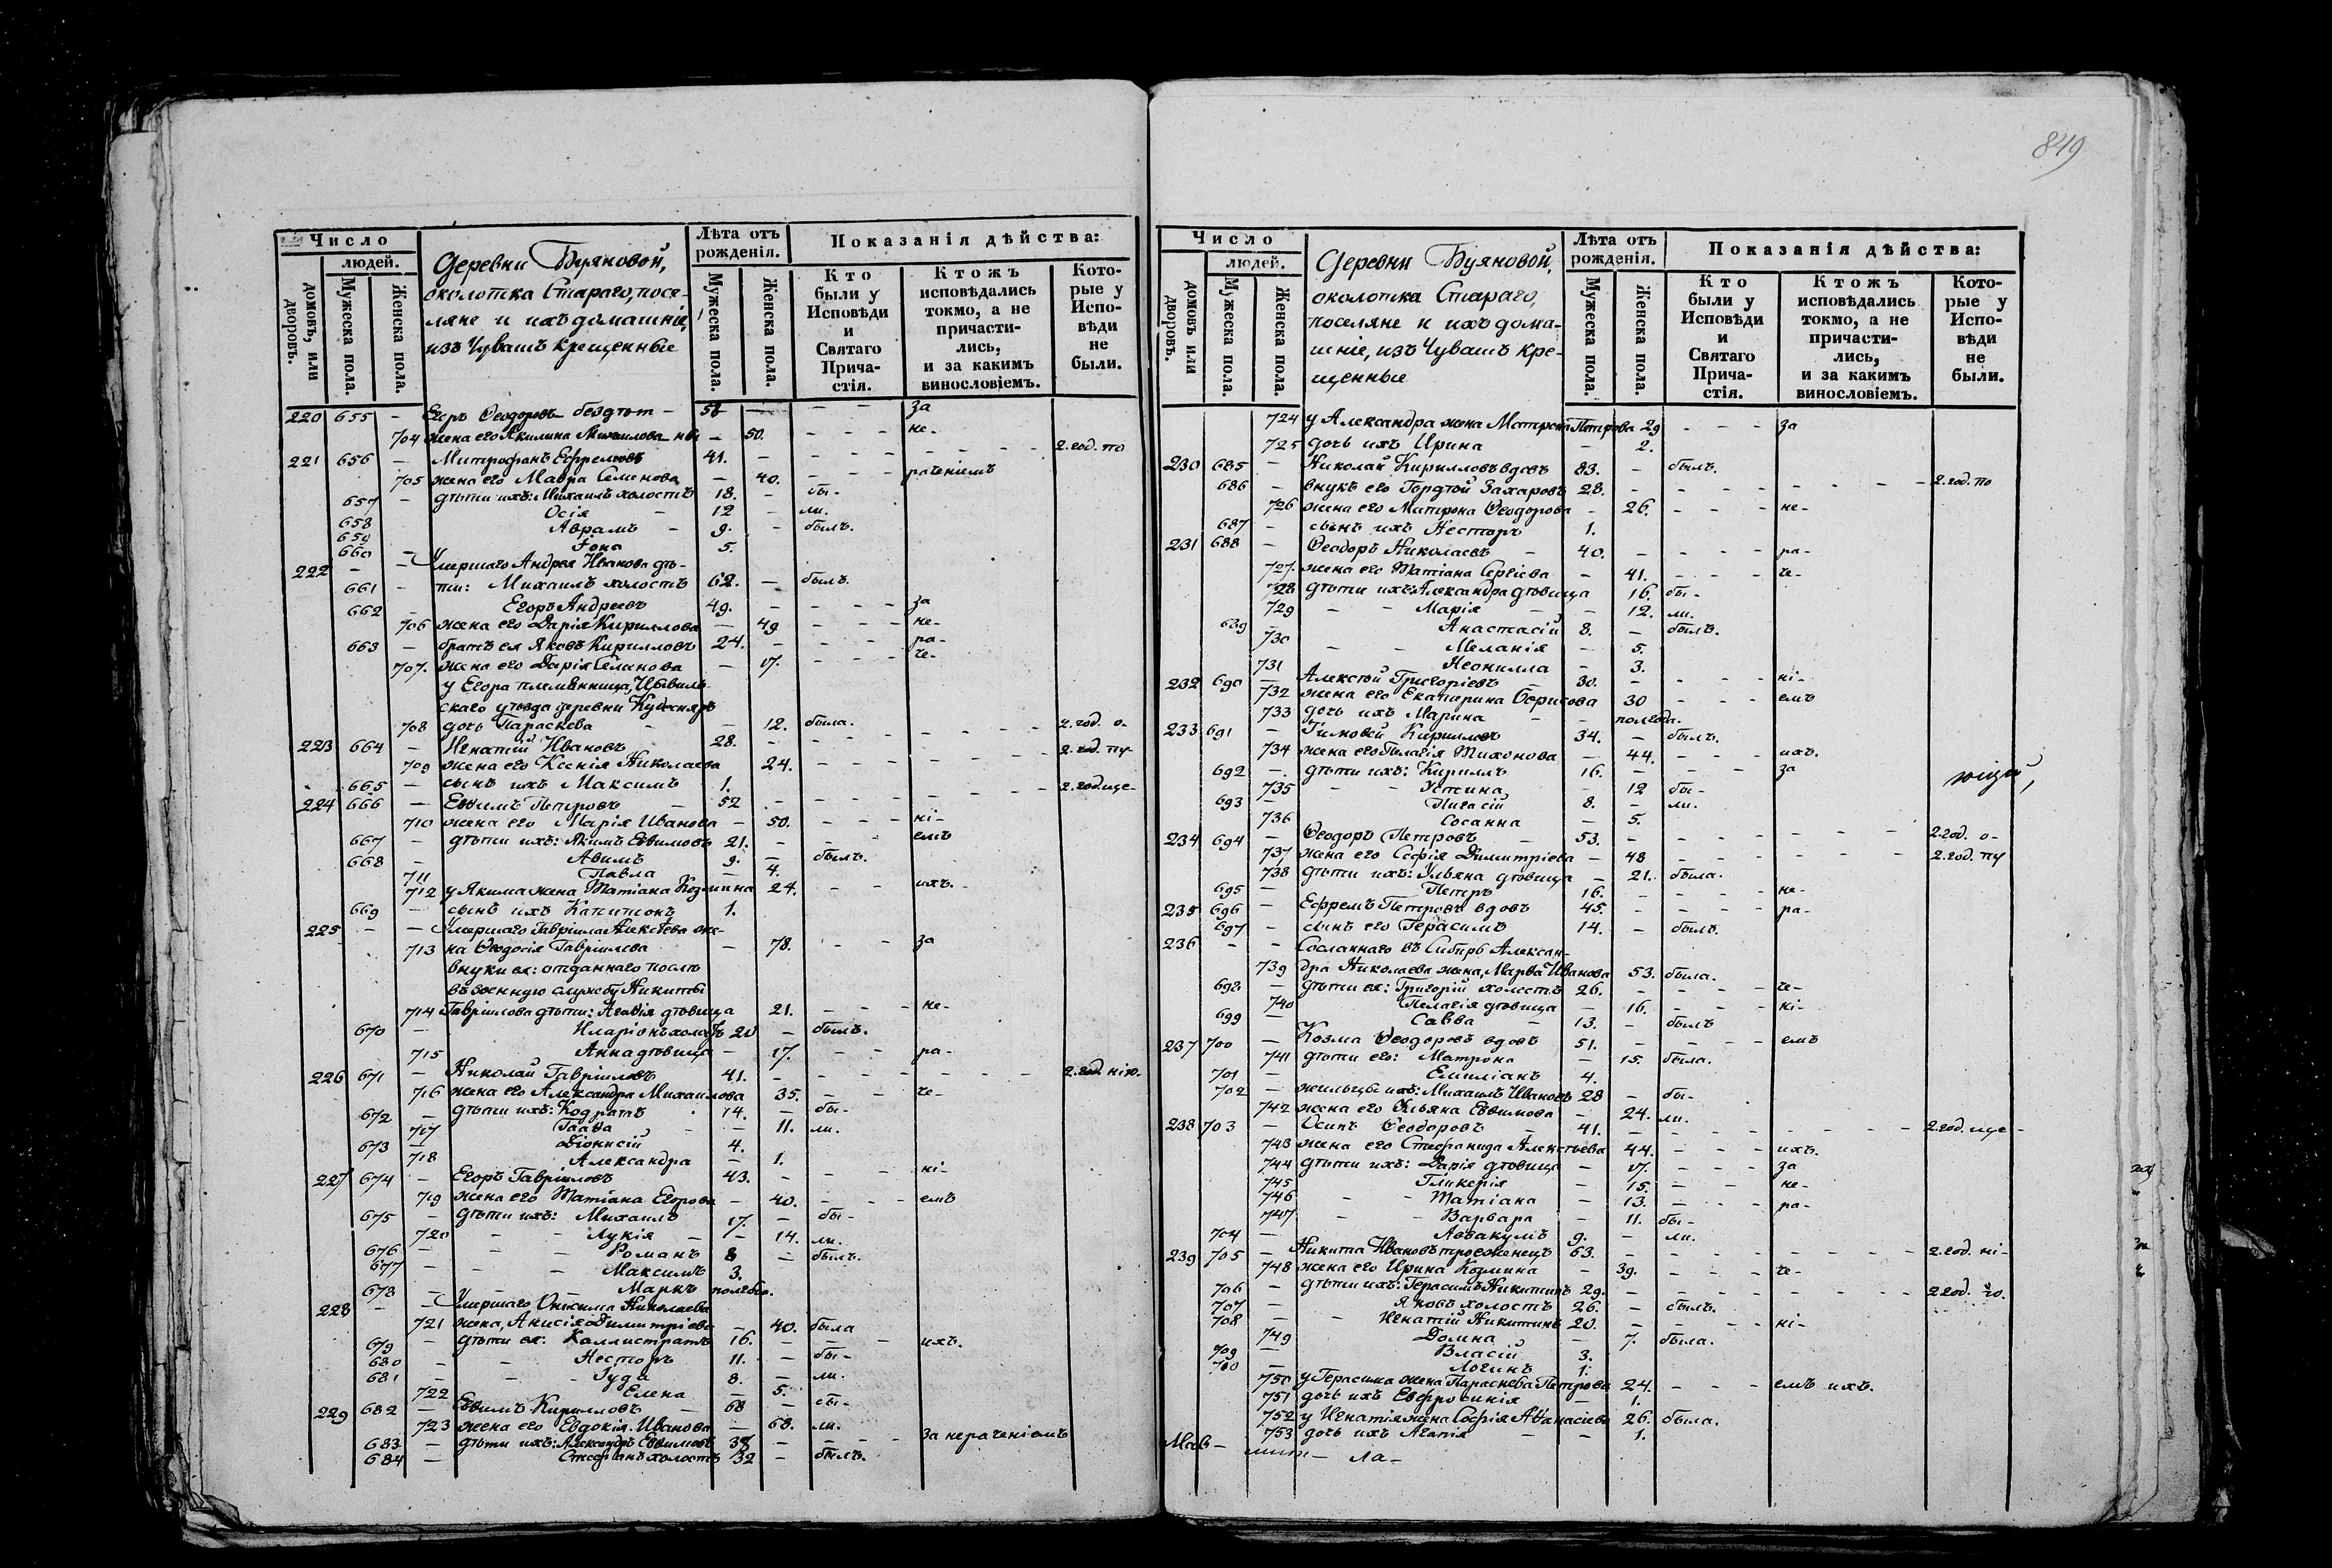 849
Число
людей.
домовъ, или дворовъ.
Мужеска пола.
Женска пола.
Деревни Буяновой,
околотка Стараго, посе-
ляне и ихъ домашніе,
изъ Чувашъ крещенные
Лѣта отъ
рожденія.
Мужеска пола.
Женска пола.
Показанія дѣйства:
Кто
были у
Исповѣди
и
Святаго
Прича-
стія.
Ктожъ
исповѣдались
токмо, а не
причасти-
лись,
и за какимъ
винословіемъ.
Кото-
рые у
Испо-
вѣди
не
были.
220 655 - Егоръ Ѳеодоровъ бездѣт - 58 - - - за
704 жена его Акилина Михаилова - ны - 50. - - - не-
221 656 - Митрофанъ Ефремовъ 41. - - - - 2.год. по
705 жена его Мавра Семенова - 40. - - - раченіемъ
657 - дѣти ихъ: Михаилъ холостъ 18. - бы-
658 Осія - 12 - ли.
659 Аврамъ - 9. - былъ.
660 - Іона 5.
222 - - Умершаго Андрея Иванова дѣ-
661 - ти: Михаилъ холостъ 62. - былъ.
662 - Егоръ Андреевъ 49. - - - - за
706 жена его Дарія Кириллова - 49 - - - не-
663 - братъ ея Яковъ Кирилловъ 24. - - - - ра-
707. жена его Дарія Семенова - 17. - - - че-
у Егора племянница, Цывиль-
скаго уѣзда деревни
708 дочь Параскева - 12. была. - - - 2.год. о-
223 664 - Игнатій Ивановъ 28. - - - - 2.год. пу-
709 жена его Ксенія Николаева 24. - - - -
665 - сынъ ихъ Максимъ 1. - - - 2.год.ще-
224 666 - Евѳимъ Петровъ - 52 - - - -
710 жена его Марія Иванова - 50. - - - ні-
667 - дѣти ихъ: Якимъ Евѳимовъ 21. - - - емъ
668 - Авимъ 9. - былъ.
711 Павла - 4.
712 у Якима жена Татіана Козмина 24. - - ихъ.
669 - сынъ ихъ Капитонъ 1.
225 - - Умершаго Гавріила Алексѣева же-
713 на Ѳеодосія Гавріилева - 78. - - за
внуки ея: отданнаго послѣ
въ военную службу Никиты
714 Гавріилова дѣти: Агаѳія дѣвица 21. - - - не-
670 - Иларіонъ холостъ 20 - былъ.
715 Анна дѣвица - 17. - - ра-
226 671 - Николай Гавріиловъ 41. - - - - 2.год. нію-
716 жена его Александра Михаилова 35. - - че-
672 - дѣти ихъ: Кодратъ 14. - бы-
717 Гаава - - 11. ли.
673 - Діонисій 4.
718 Александра - 1.
227 674 - Егоръ Гавріиловъ 43. - - - ні-
719 жена его Татіана Егорова - 40. - - - емъ
675 - дѣти ихъ: Михаилъ 17. - бы-
720 - - Лукія - - 14. ли.
676 - - - Романъ 8 - былъ.
677 - - - Максимъ 3.
678 - - - Маркъ полгода.
228 - - Умершаго Онисима Николаева
721 жена, Анисія Димитріева - 40. была
679 - дѣти ея: Каллистратъ 16. - - - ихъ.
680 - - Несторъ 11. - бы-
681 - - - Іуда 8. - ли.
722 Елена - 5.
229 682 - Евѳимъ Кирилловъ - 68 - бы-
723 жена его Евдокія Иванова - 68. ли.
683 - дѣти ихъ: Александръ Евѳимовъ 38 - - - - за нераченіемъ
684 - Стефанъ холостъ 32 - былъ.
Число
людей.
домовъ или дворовъ.
Мужеска пола.
Женска пола.
Деревни Буяновой,
околотка Стараго,
поселяне и ихъ дома-
шніе, изъ Чувашъ кре-
щенные
Лѣта отъ
рожденія.
Мужеска пола.
Женска пола.
Показанія дѣйства:
Кто
были у
Исповѣди
и
Святаго
Прича-
стія.
Ктожъ
исповѣдались
токмо, а не
причасти-
лись,
и за какимъ
винословіемъ.
Кото-
рые у
Испо-
вѣди
не
были.
724 у Александра жена Матрона Петрова 29 - - - за
725 дочь ихъ Ирина - 2.
230 685 - Николай Кирилловъ вдовъ 83. - былъ.
686 - внукъ его Гордѣй Захаровъ 28. - - - - 2.год. по
726 жена его Матрона Ѳеодорова - 26. - - - не-
687 - сынъ ихъ Несторъ 1.
231 688 - Ѳеодоръ Николаевъ - 40. - - - ра-
727. жена его Татіана Сергіева - 41. - - - че-
728 дѣти ихъ: Александра дѣвица 16. бы-
729 - - Марія - - 12. ли.
689 - Анастасій 8. - былъ.
730 - - Меланія - 5.
731 Неонилла - 3.
232 690 - Алексѣй Григоріевъ - 30. - - - ні-
732 жена его Екатерина Борисова 30 - - - емъ
733 дочь ихъ Марина - - полгода.
233 691 - Тимоѳей Кирилловъ 34. - былъ.
734 жена его Пелагія Тихонова - 44. - - - ихъ.
692 -. дѣти ихъ: Кириллъ 16. - - - за
735 - - Устина, - 12 бы-
693 - Пигасій 8. - ли.
736 Сосанна - 5.
щій,
234 694 - Ѳеодоръ Петровъ - 53. - - - - 2.год. о-
737 жена его Софія Димитріева - 48 - - - - 2.год. пу
738 дѣти ихъ: Ульяна дѣвица - 21. была.
695 - Петръ 16. - - - не-
235 696 - Ефремъ Петровъ вдовъ 45. - - - ра-
697 - сынъ его Герасимъ 14. - былъ.
236 - - Сосланнаго въ Сибирь Алексан-
739 дра Николаева жена, Марѳа Иванова 53. была.
698 - дѣти ея: Григорій холостъ 26. - - - че-
740 Пелагія дѣвица - 16. - - - ні-
699 - Савва - 13. - былъ
237 700 - Козма Ѳеодоровъ вдовъ 51. - - - емъ
741 дѣти его: Матрона - 15. была.
701 - Емиліанъ 4.
702 - жильцы ихъ: Михаилъ Ивановъ 28 - бы-
742 жена его Ульяна Евѳимова - 24. ли.
238 703 - Осипъ Ѳеодоровъ - 41. - - - - 2.год. ще-
743 жена его Стефанида Алексѣева 44. - - - ихъ.
744 дѣти ихъ: Дарія дѣвица - 17. - - - за
745 Гликерія - 15. - - - не-
746 - - Татіана - 13. - - - ра-
747 - Варвара - 11. бы-
704 - Аввакумъ 9. - ли.
239 705 - Никита Ивановъ троеженецъ 63. - - - - 2.год. ні-
748 жена его Ирина Козмина - 39. - - - че-
706 - дѣти ихъ: Герасимъ Никитинъ 29. - - - - 2.год. го.
707 - Яковъ холостъ 26. - былъ.
708 - - Игнатій Никитинъ 20. - - - ні-
749 Домна - 7. была.
709 - Власій 3.
710 - Логинъ 1.
750 у Герасима жена Параскева Петрова 24. - - - емъ ихъ.
751 дочь ихъ Евфросинія - 1.
752 у Игнатія жена Софія Аѳанасіева 26. была.
753 дочь ихъ Агапія - - 1.